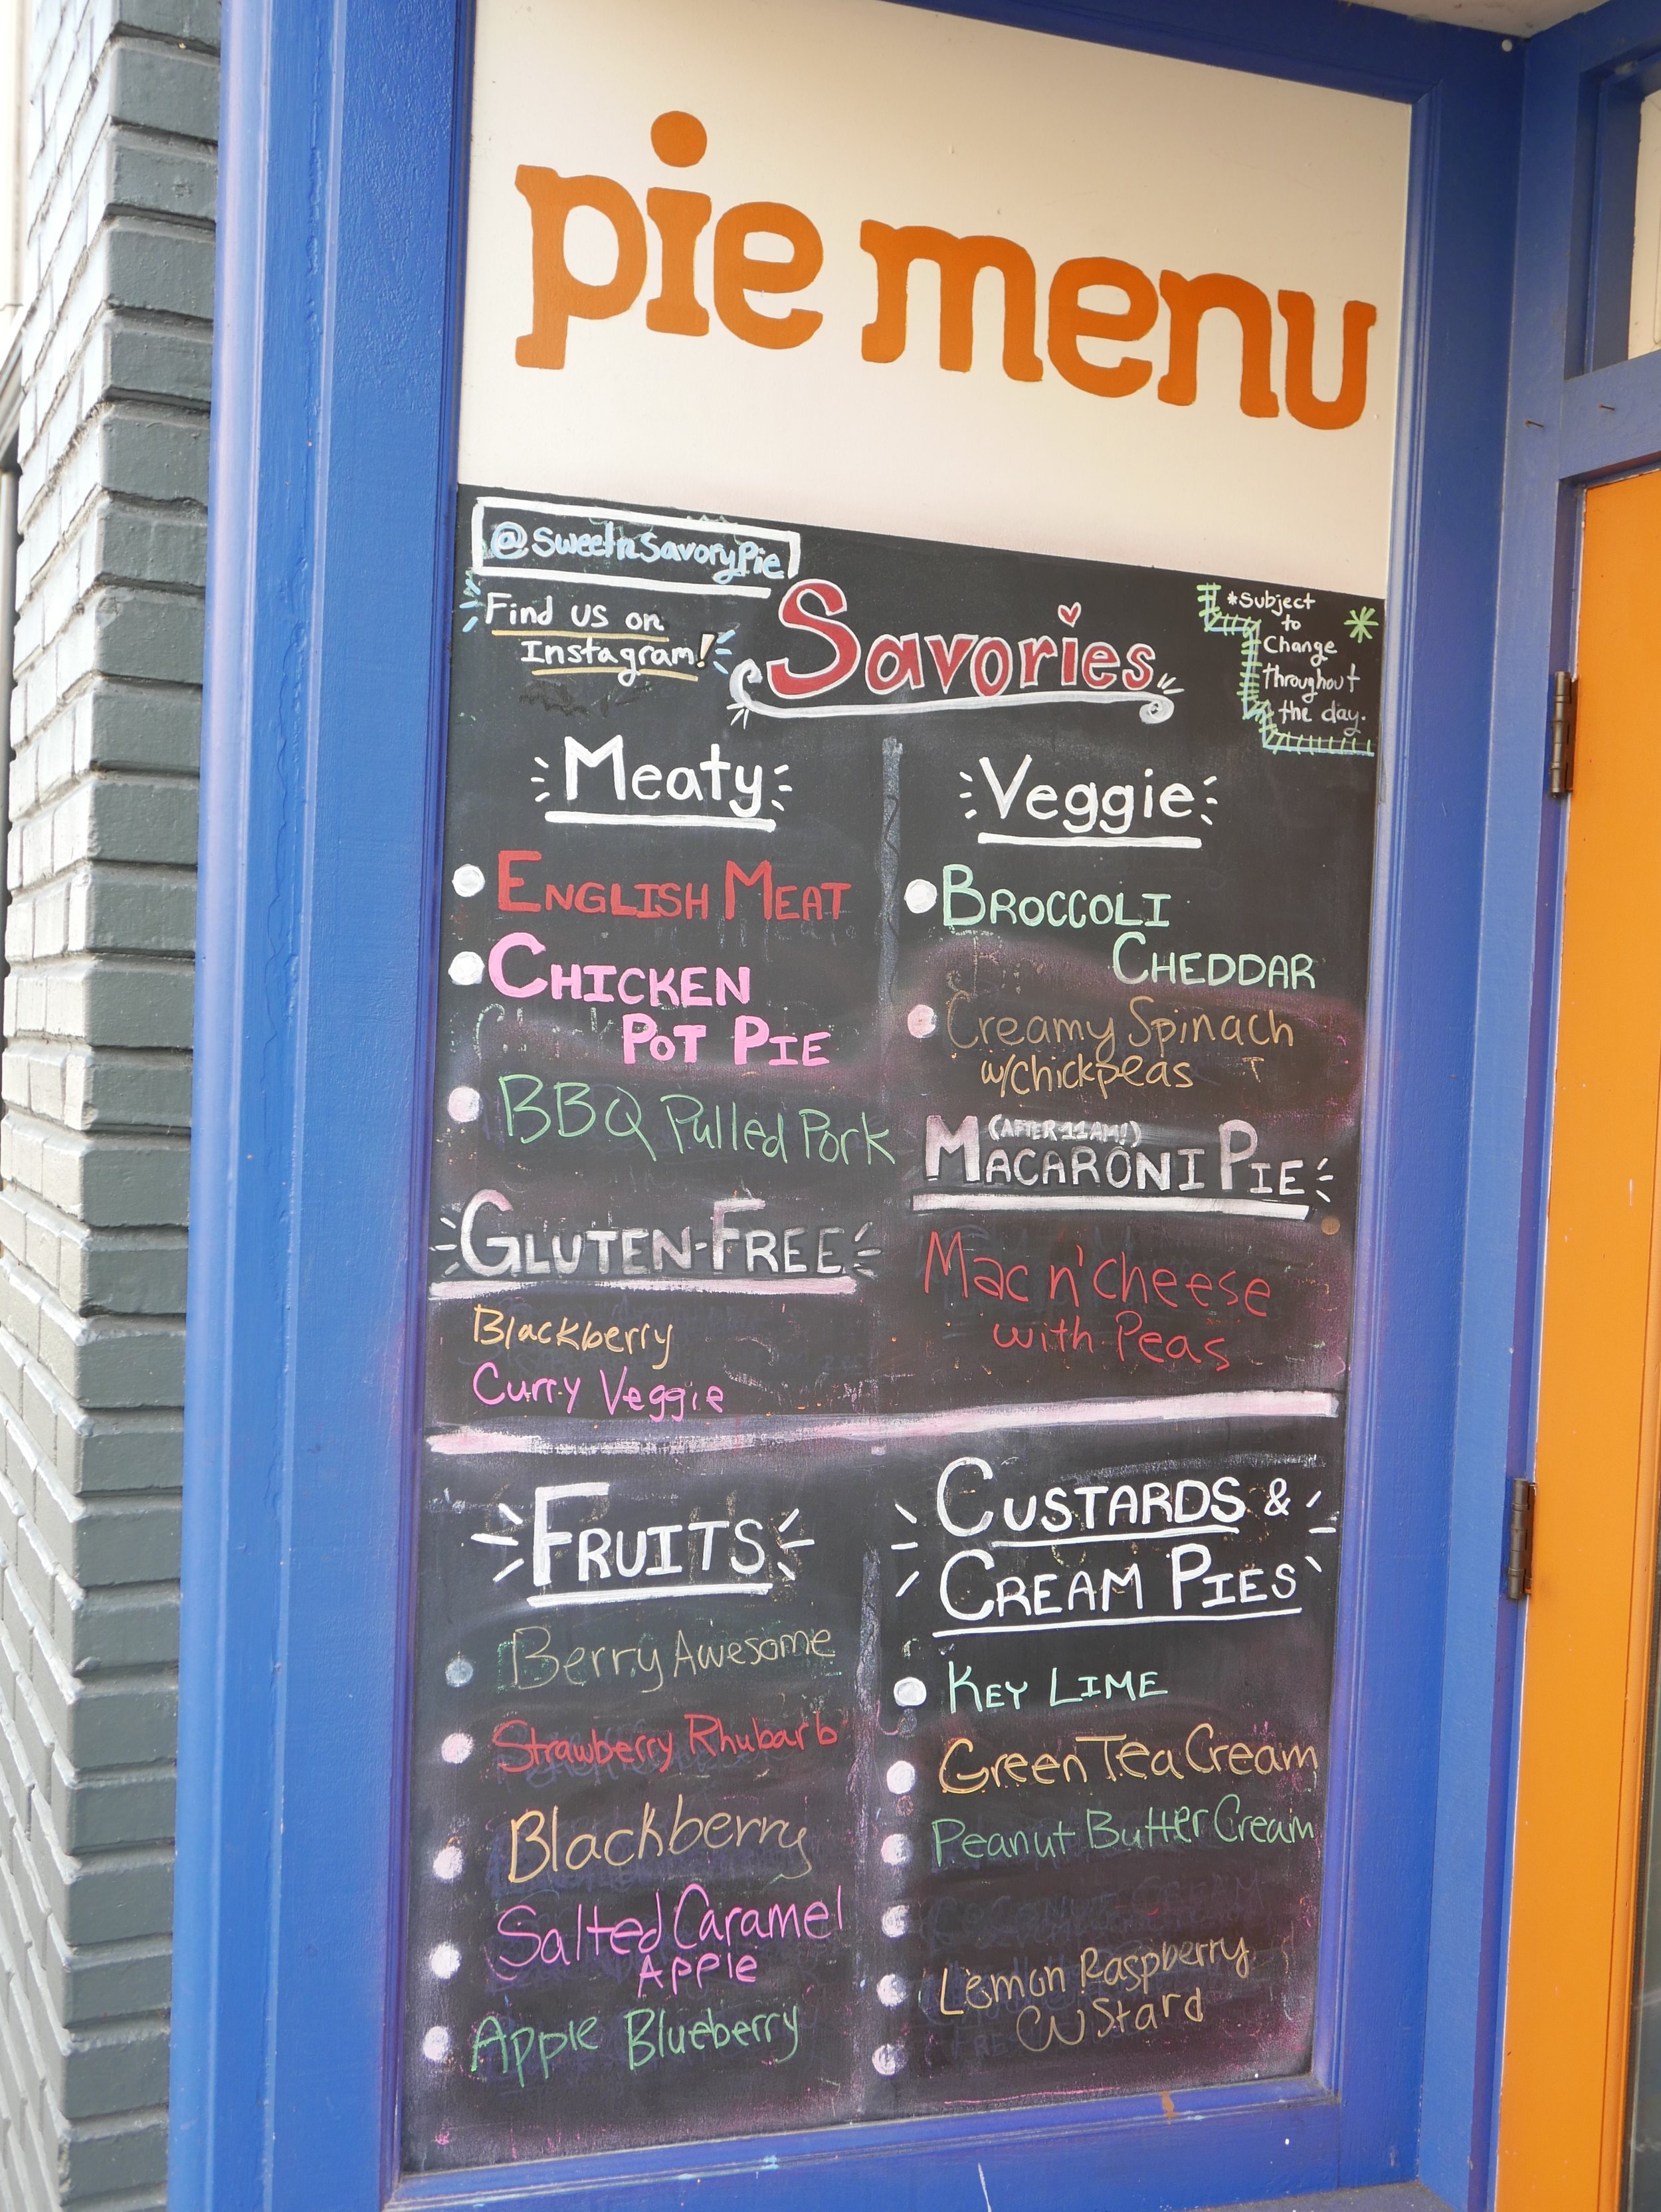 pie menu
@SweetnSavoryPie
Find us on
Instagram!
Savories
*Subject
to
Change
throughout
the day.
Meaty
ENGLISH MEAT
CHICKEN
POT PIE
BBQ Pulled Pork
GLUTEN-FREE
Blackberry
Curry Veggie
Veggie
BROCCOLI
CHEDDAR
Creamy Spinach
w/chickpeas
(AFTER 11AM!)
MACARONI PIE
Mac n' cheese
with Peas
FRUITS
Berry Awesome
Strawberry Rhubarb
Blackberry
Salted Caramel
Apple
Apple Blueberry
CUSTARDS &
CREAM PIES
KEY LIME
Green Tea Cream
Peanut Butter Cream
Lemon Raspberry
CUStard